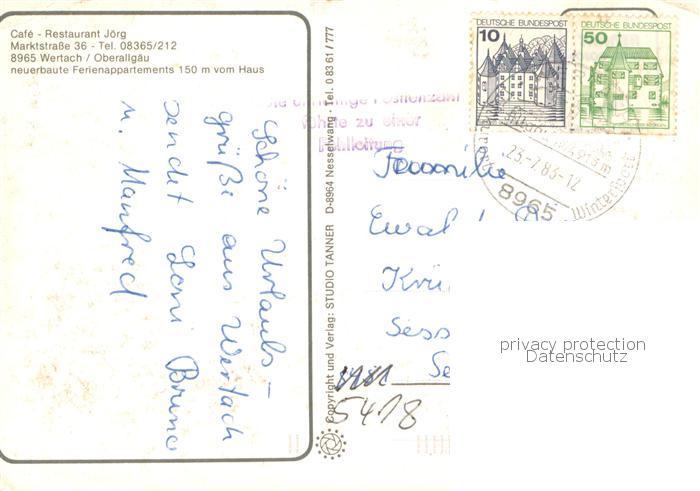 Café - Restaurant Jörg
Marktstraße 36 - Tel. 08365/212
8965 Wertach / Oberallgäu
neuerbaute Ferienappartements 150 m vom Haus
Schöne Urlaubs-
grüße aus Wertach
sendet Loni Bruno
u. Manfred
Copyright und Verlag: STUDIO TANNER D-8964 Nesselwang · Tel. 0 83 61 / 777
DEUTSCHE BUNDESPOST
10
DEUTSCHE BUNDESPOST
50
führte zu einer
915 m
23.-7.83-12
8965
Wintersport
Familie
Ewal
Krü
Sess
Se
5418
privacy protection
Datenschutz